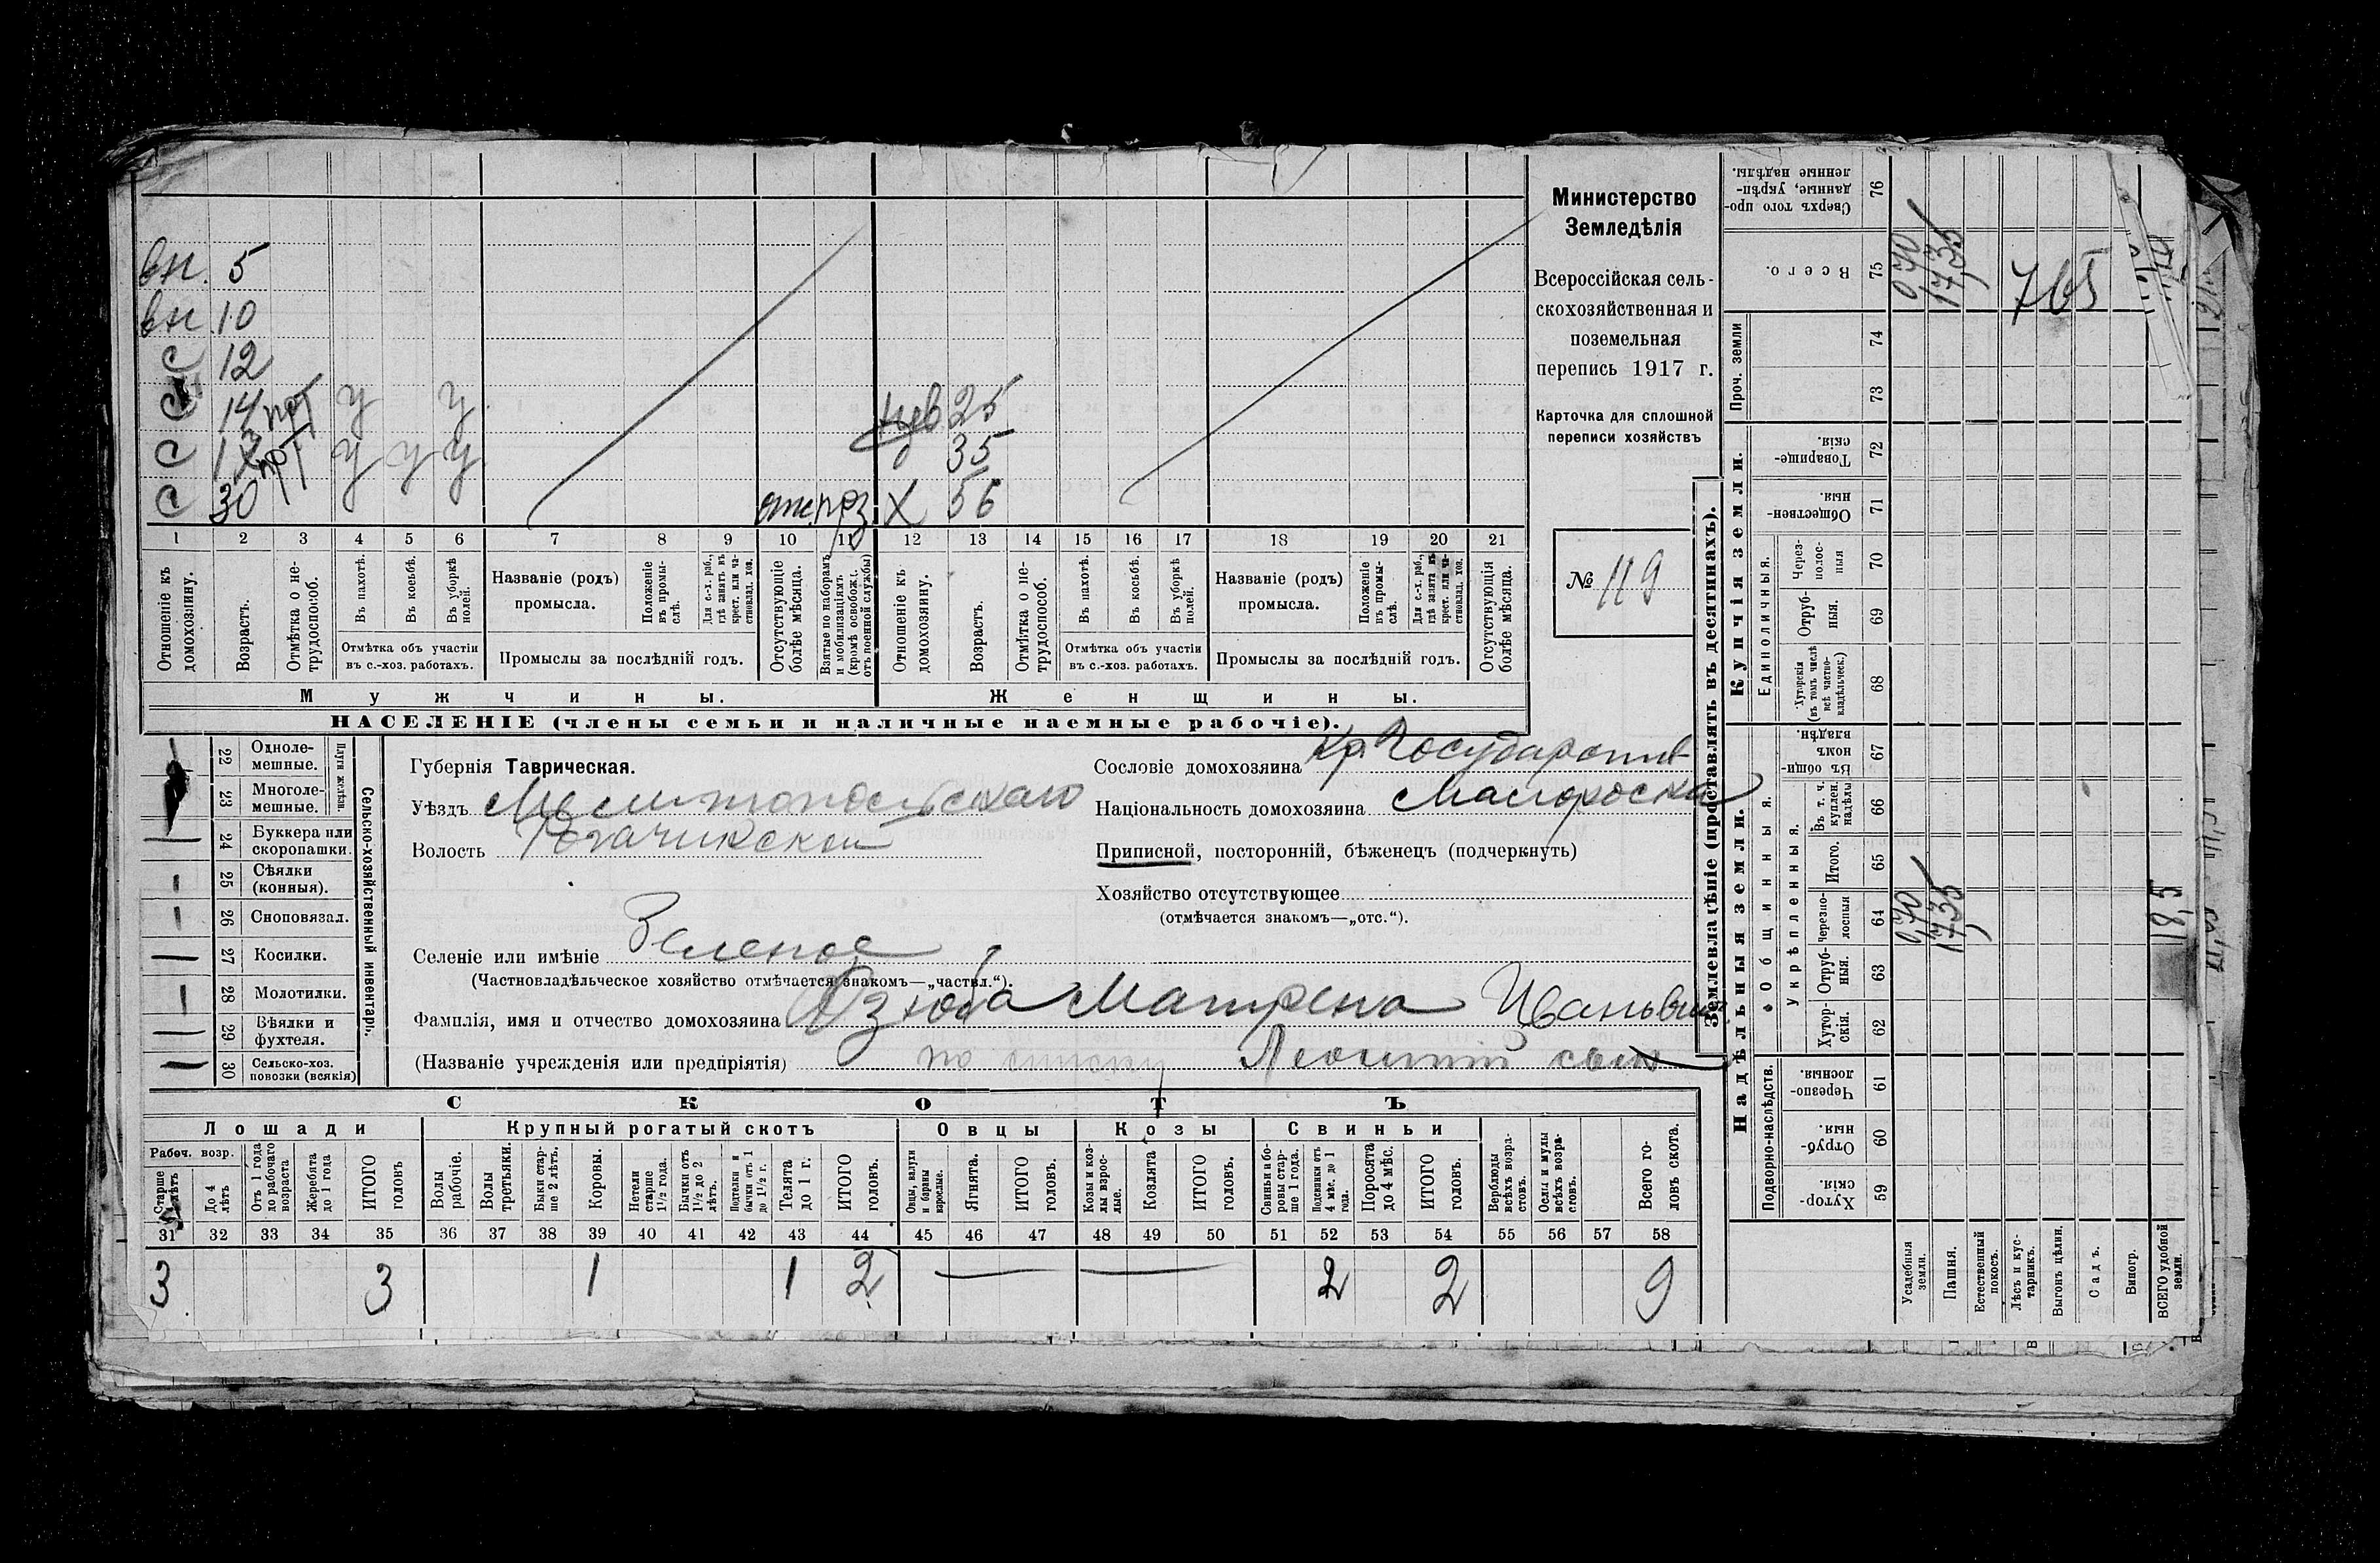 вн. 5
вн. 10
с 12
с 14 у у
с у у у
с 30
нев. 25
35
х 56
1 2 3 4 5 6 7 8 9 10 11 12 13 14 15 16 17 18 19 20 21
Отношеніе къ домохозяину.
Возрастъ.
Отмѣтка о нетрудоспособ.
Въ пахотѣ.
Въ косьбѣ.
Въ уборкѣ полей.
Отмѣтка объ участіи
въ с.-хоз. работахъ.
Названіе (родъ)
промысла.
Положеніе въ промыслѣ.
Для с.-х. раб., гдѣ занятъ въ крест. или частновлад. хоз.
Промыслы за послѣдній годъ.
Отсутствующіе болѣе мѣсяца.
Взятые по наборамъ и мобилизаціямъ (кромѣ освобожд. отъ военной службы)
Отношеніе къ домохозяину.
Возрастъ.
Отмѣтка о нетрудоспособ.
Въ пахотѣ.
Въ косьбѣ.
Въ уборкѣ полей.
Отмѣтка объ участіи
въ с.-хоз. работахъ.
Названіе (родъ)
промысла.
Положеніе въ промыслѣ.
Для с.-х. раб., гдѣ занята въ крест. или частновлад. хоз.
Промыслы за послѣдній годъ.
Отсутствующія болѣе мѣсяца.
Мужчины.
Женщины.
НАСЕЛЕНІЕ (члены семьи и наличные наемные рабочіе).
Министерство
Земледѣлія
Всероссійская сель-
скохозяйственная и
поземельная
перепись 1917 г.
Карточка для сплошной
переписи хозяйствъ
№ 119
22 Одноле-
мешные.
23 Многоле-
мешные.
Плуги желѣзн.
24 Буккера или
скоропашки.
25 Сѣялки
(конныя).
26 Сноповязал.
27 Косилки.
28 Молотилки.
29 Вѣялки и
фухтеля.
30 Сельско-хоз.
повозки (всякія)
Сельско-хозяйственный инвентарь.
Губернія Таврическая.
Уѣздъ Мелитопольскаго
Волость Рогачикской
Селеніе или имѣніе Зеленое
(Частновладѣльческое хозяйство отмѣчается знакомъ—„частвл.“).
Фамилія, имя и отчество домохозяина Дзюба Матрена
(Названіе учрежденія или предпріятія) по списку Леонтій сынъ
Сословіе домохозяина Кр. Государств
Національность домохозяина Малоросска
Приписной, посторонній, бѣженецъ (подчеркнуть)
Хозяйство отсутствующее
(отмѣчается знакомъ—„отс.“).
СКОТЪ
Лошади
Крупный рогатый скотъ
Овцы
Козы
Свиньи
Рабоч. возр.
Старше лѣтъ
До 4 лѣтъ
Отъ 1 года до рабочаго возраста
Жеребята до 1 года
ИТОГО головъ
Волы рабочіе.
Волы третьяки.
Быки старше 2 лѣтъ.
Коровы.
Нетели старше 1½ года.
Бычки отъ 1½ до 2 лѣтъ.
Подтелки и бычки отъ 1 до 1½ г.
Телята до 1 г.
ИТОГО головъ.
Овцы, валухи и бараны взрослые.
Ягнята.
ИТОГО головъ.
Козы и козлы взрослые.
Козлята
ИТОГО головъ.
Свиньи и боровы старше 1 года.
Подсвинки отъ 4 мѣс. до 1 года.
Поросята до 4 мѣс.
ИТОГО головъ.
Верблюды всѣхъ возрастовъ.
Ослы и мулы всѣхъ возрастовъ.
Всего головъ скота.
31 32 33 34 35 36 37 38 39 40 41 42 43 44 45 46 47 48 49 50 51 52 53 54 55 56 57 58
3 3 1 1 2 2 2 9
Землевладѣніе (проставлять въ десятинахъ).
Купчія земли.
Надѣльныя земли.
Сверхъ того проданные, укрѣпленные надѣлы. 76
Всего. 75
Проч. земли 74 73
Товарищескія. 72
Общественныя. 71
Единоличныя.
Черезполосныя 70
Отрубныя. 69
Хуторскія (въ томъ числѣ всѣ частновладѣльческ.) 68
Общинныя.
Въ общинномъ владѣн. 67
Укрѣпленныя.
Въ т. ч. куплен. надѣлы 66
Итого. 65
Черезполосныя 64
Отрубныя. 63
Хуторскія. 62
Подворно-наслѣдств.
Черезполосныя. 61
Отрубныя. 60
Хуторскія. 59
Усадебныя земли.
Пашня.
Естественный покосъ.
Лѣсъ и кустарникъ.
Выгонъ цѣлин.
Садъ.
Виногр.
ВСЕГО удобной земли.
0,70
17,35
765
0,70
17,35
18,5